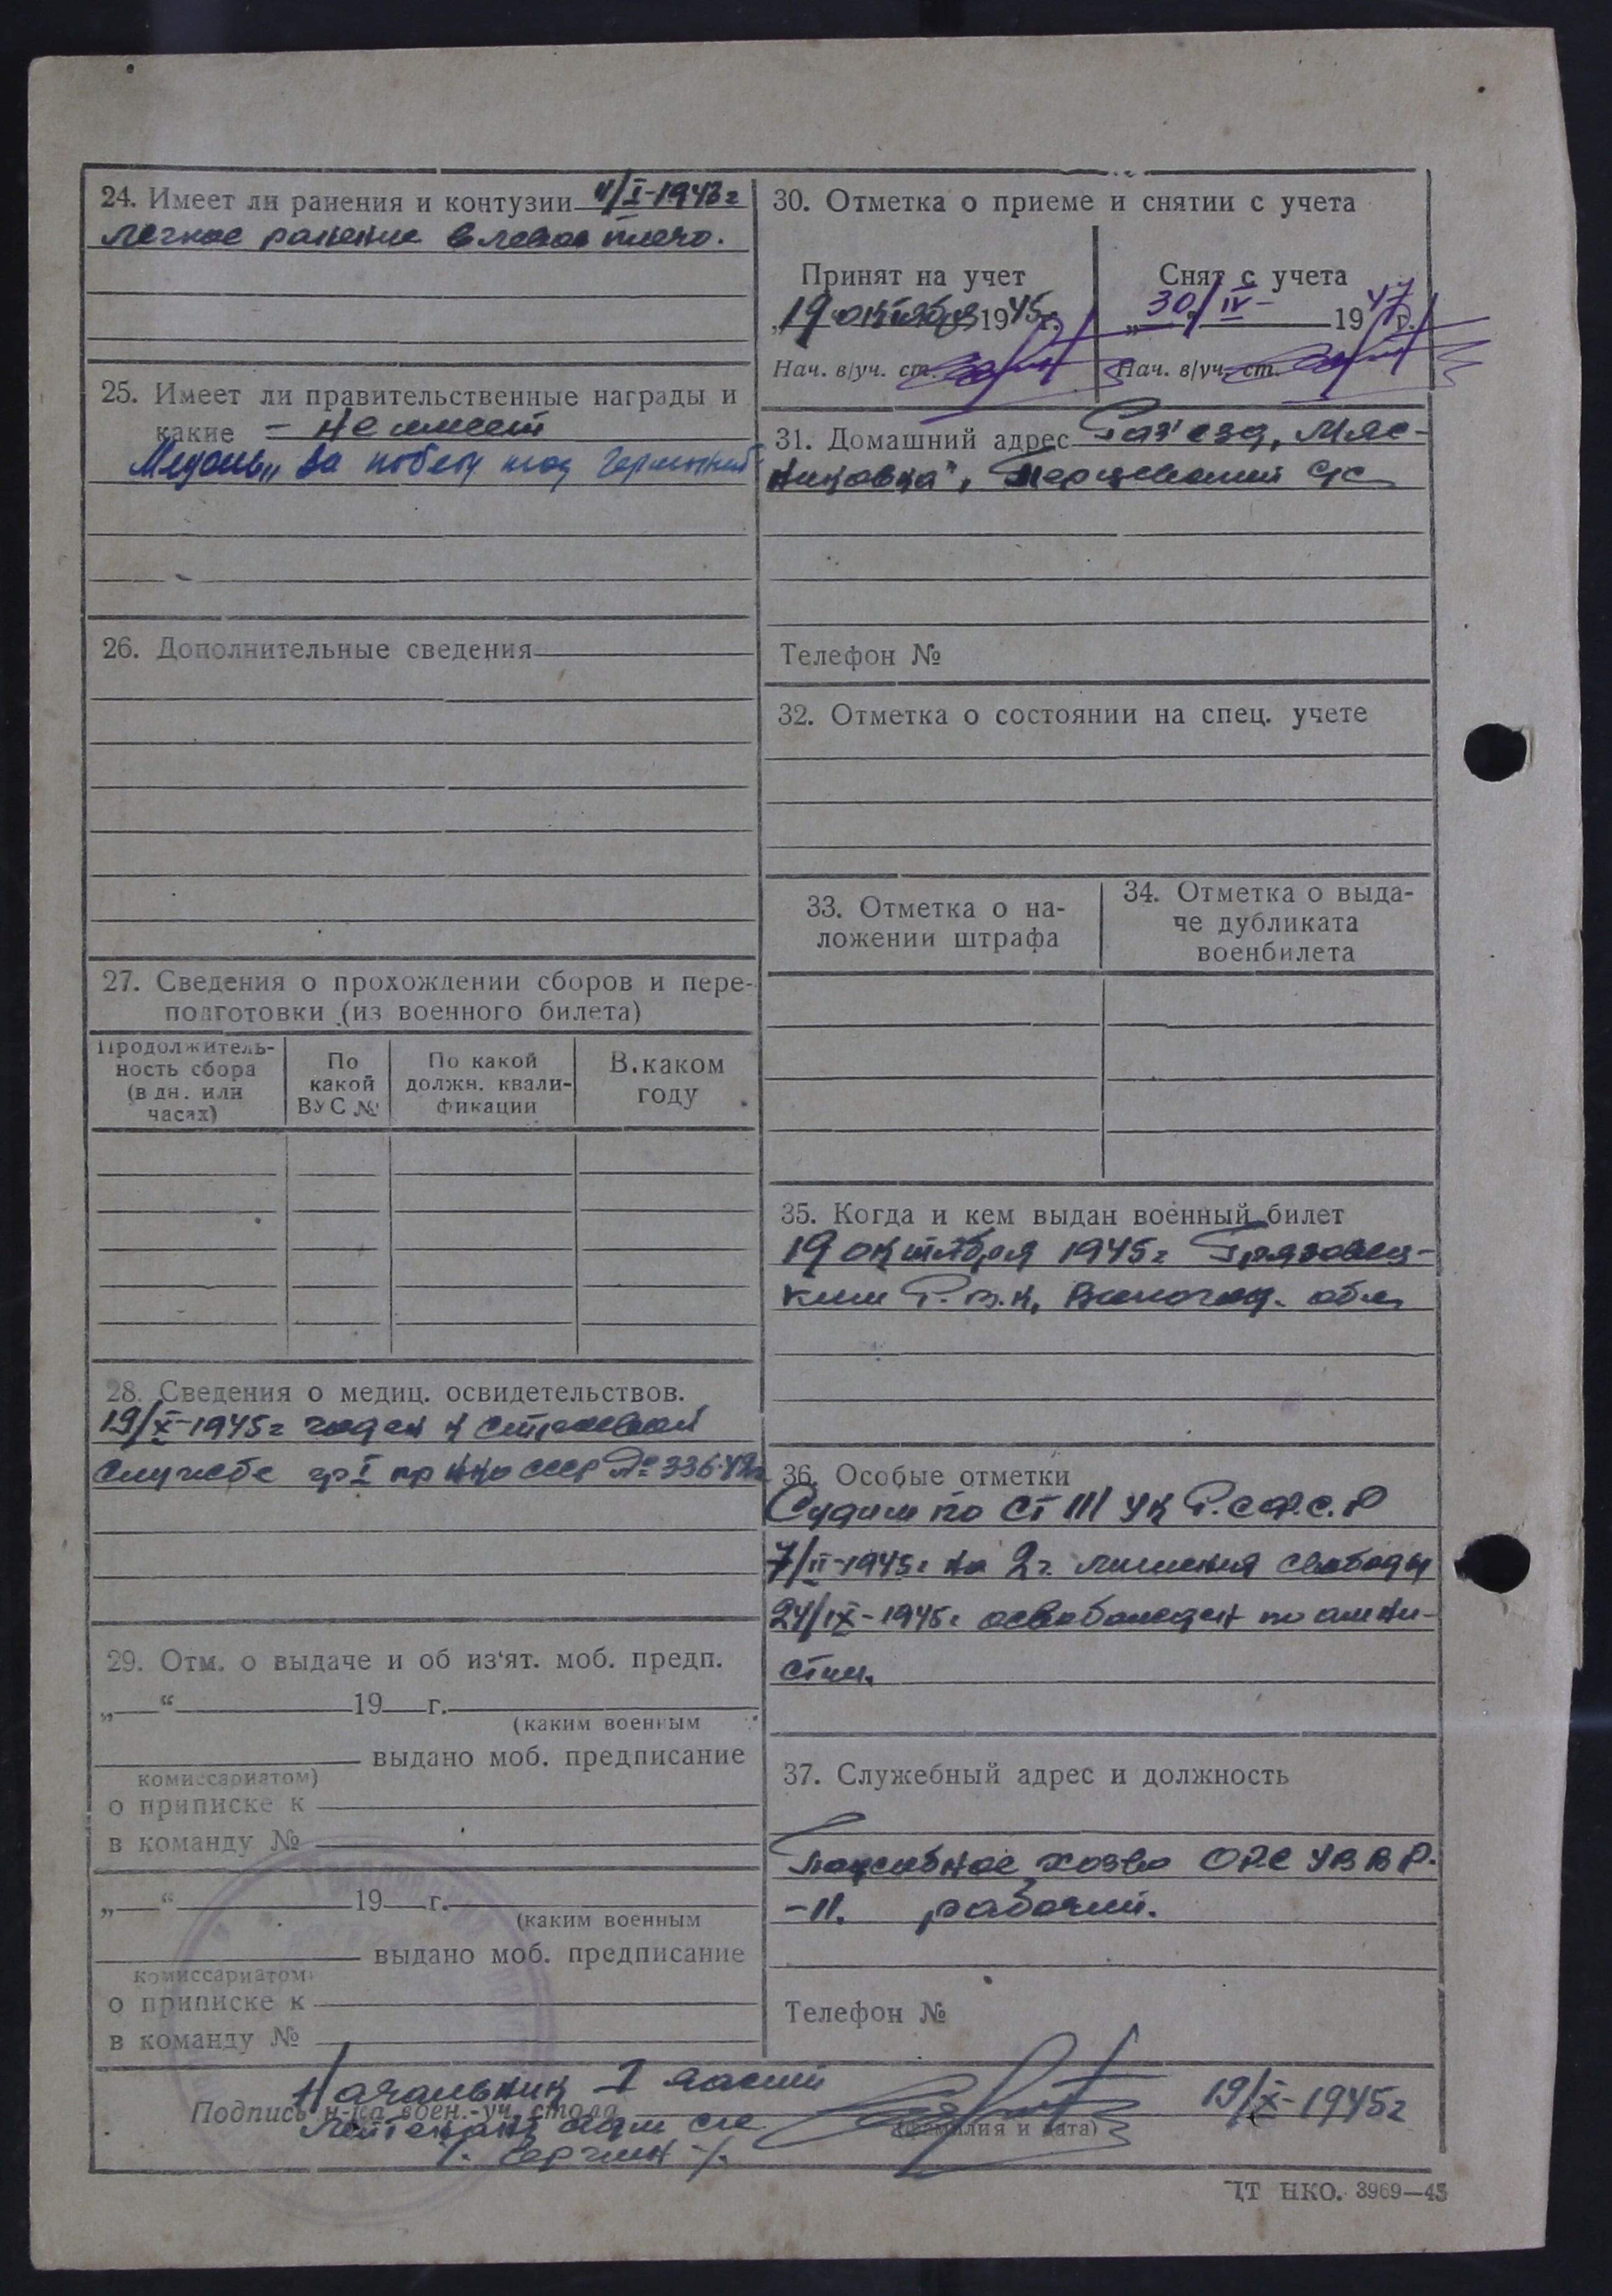 24. Имеет ли ранения и контузии 4/I-1943 г
легкое ранение в левое плечо.
25. Имеет ли правительственные награды и
какие - не имеет
Медаль „За победу над Германией
26. Дополнительные сведения
27. Сведения о прохождении сборов и пере-
подготовки (из военного билета)
Продолжитель-
ность сбора
(в дн. или
часах)
По
какой
ВУС №
По какой
должн. квали-
фикации
В каком
году
28. Сведения о медиц. освидетельствов.
19/X-1945 г годен к строевой
службе гр I пр НКО СССР № 336-42г
29. Отм. о выдаче и об из‘ят. моб. предп.
„__“ 19__г.
(каким военным
выдано моб. предписание
комиссариатом)
о приписке к
в команду №
„__“ 19__г.
(каким военным
выдано моб. предписание
комиссариатом)
о приписке к
в команду №
30. Отметка о приеме и снятии с учета
Принят на учет
„19 октября 1945 г.
Нач. в/уч. ст.
Снят с учета
„30/IV- 1947 г.
Нач. в/уч. ст.
31. Домашний адрес Раз'езд, Мяс-
никовка", Перцевский с/с
Телефон №
32. Отметка о состоянии на спец. учете
33. Отметка о на-
ложении штрафа
34. Отметка о выда-
че дубликата
военбилета
35. Когда и кем выдан военный билет
19 октября 1945 г Грязовец-
ким Р.В.К, Вологод. обл
36. Особые отметки
Судим по ст 111 УК Р.С.Ф.С.Р
7/II-1945 г на 2 г. лишения свободы
24/IX-1945 г освобожден по амни-
стии.
37. Служебный адрес и должность
Подсобное хоз-во ОРС УВВР.
-11. рабочий.
Телефон №
Начальник I части
Подпись н-ка воен.-уч. стола
лейтенант адм сл
19/X-1945 г
(фамилия и дата)
ЦТ НКО. 3969—45